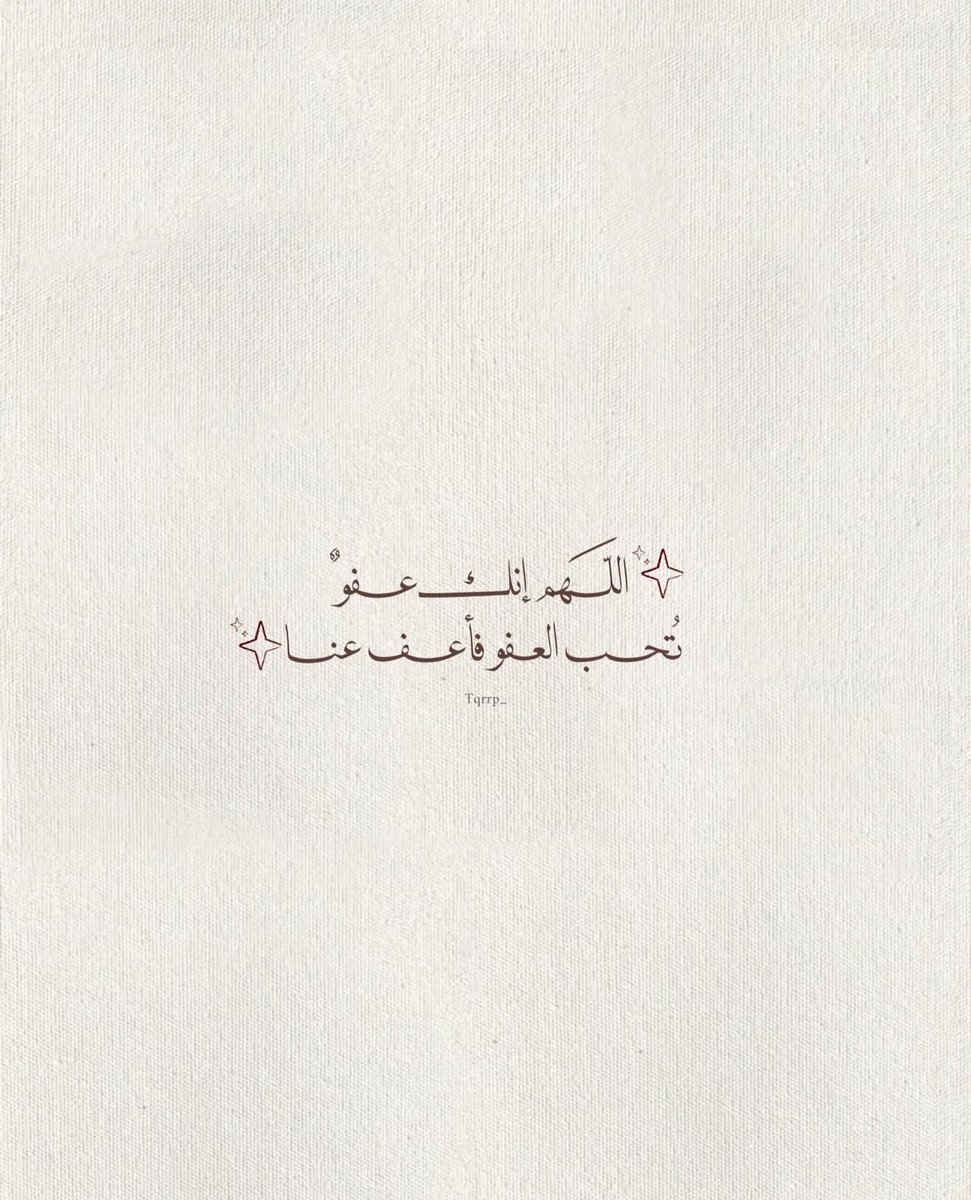 اللّهم إنك عفوٌ
تُحب العفو فأعف عنا
Tqrrp_